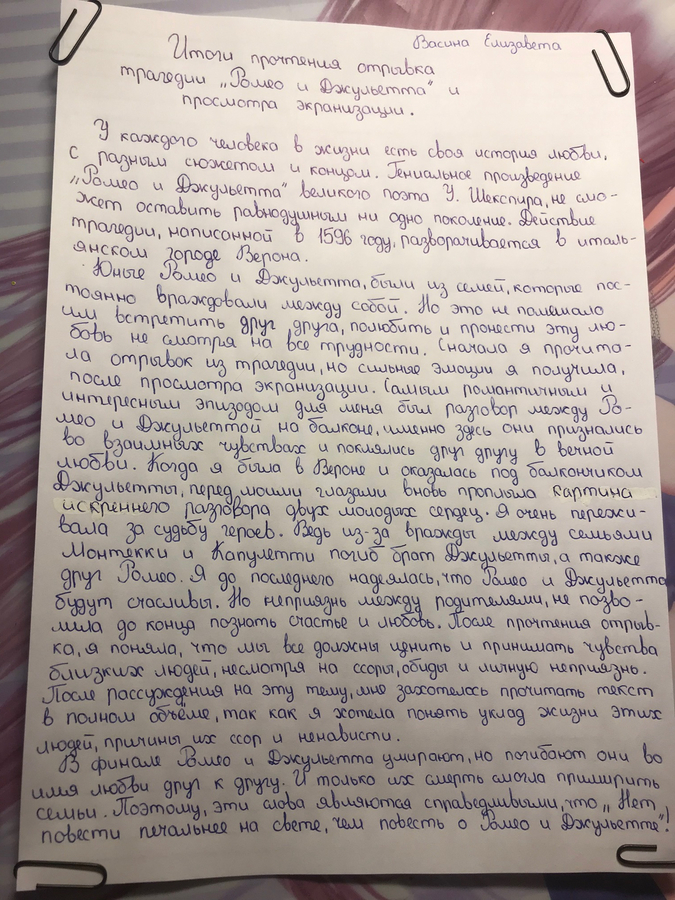 Васина Елизавета
Итоги прочтения отрывка
трагедии „Ромео и Джульетта" и
просмотра экранизации.
У каждого человека в жизни есть своя история любви,
с разным сюжетом и концом. Гениальное произведение
„Ромео и Джульетта" великого поэта У. Шекспира, не смо-
жет оставить равнодушным ни одно поколение. Действие
трагедии, написанной в 1596 году, разворачивается в италь-
янском городе Верона.
Юные Ромео и Джульетта, были из семей, которые пос-
тоянно враждовали между собой. Но это не помешало
им встретить друг друга, полюбить и пронести эту лю-
бовь не смотря на все трудности. Сначала я прочита-
ла отрывок из трагедии, но сильные эмоции я получила,
после просмотра экранизации. Самым романтичным и
интересным эпизодом для меня был разговор между Ро-
мео и Джульеттой на балконе, именно здесь они признались
во взаимных чувствах и поклялись друг другу в вечной
любви. Когда я была в Вероне и оказалась под балкончиком
Джульетты, перед моими глазами вновь проплыла картина
искреннего разговора двух молодых сердец. Я очень пережи-
вала за судьбу героев. Ведь из-за вражды между семьями
Монтекки и Капулетти погиб брат Джульетты, а также
друг Ромео. Я до последнего надеялась, что Ромео и Джульетта
будут счасливы. Но неприязнь между родителями, не позво-
лила до конца познать счастье и любовь. После прочтения отрыв-
ка, я поняла, что мы все должны ценить и принимать чувства
близких людей, несмотря на ссоры, обиды и личную неприязнь.
После рассуждения на эту тему, мне захотелось прочитать текст
в полном объёме, так как я хотела понять уклад жизни этих
людей, причины их ссор и ненависти.
В финале Ромео и Джульетта умирают, но погибают они во
имя любви друг к другу. И только их смерть смогла примирить
семьи. Поэтому, эти слова являются справедливыми, что „Нет
повести печальнее на свете, чем повесть о Ромео и Джульетте"!